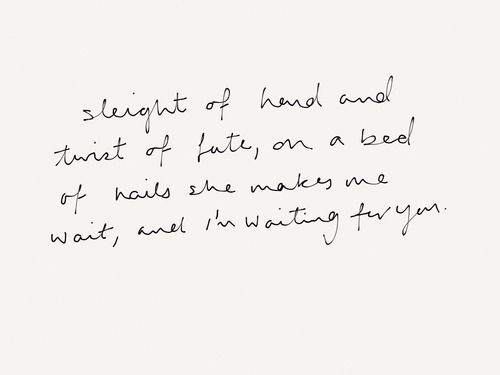 sleight of hand and
twist of fate, on a bed
of nails she makes me
wait, and I'm waiting for you.